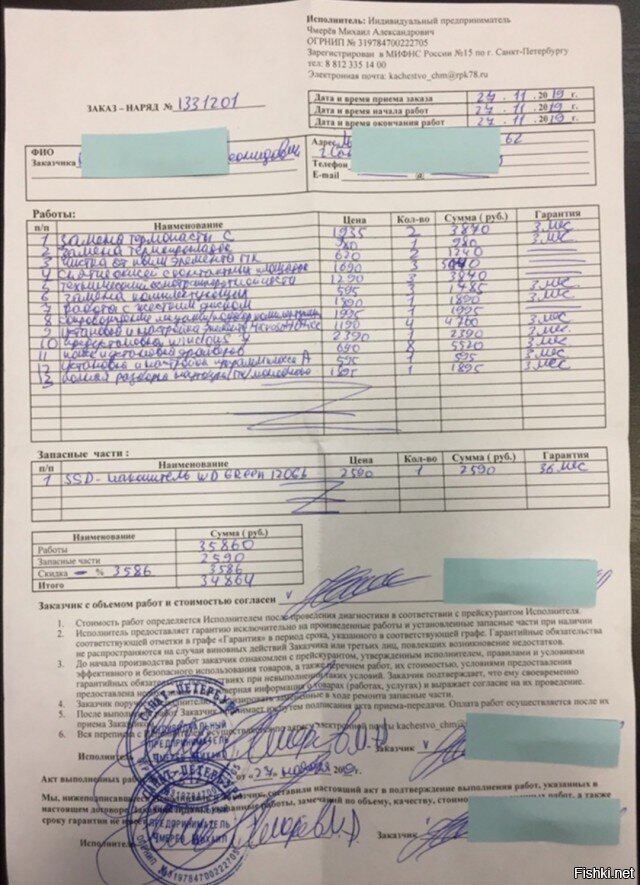 Исполнитель: Индивидуальный предприниматель
Чмерёв Михаил Александрович
ОГРНИП № 319784700222705
Зарегистрирован в МИФНС России №15 по г. Санкт-Петербургу
тел: 8 812 335 14 00
Электронная почта: kachestvo_chm@rpk78.ru
ЗАКАЗ – НАРЯД № 1331201
Дата и время приема заказа 27. 11. 2019 г.
Дата и время начала работ 27. 11. 2019 г.
Дата и время окончания работ 27. 11. 2019 г.
ФИО
Заказчика
Адрес 62
Телефон
E-mail @
Работы:
п/п Наименование Цена Кол-во Сумма ( руб.) Гарантия
1 Замена термопасты С 1935 2 3870 3 мес
2 Замена 980 1 980 3 мес
3 Чистка от пыли элементов ПК 620 2 1240
4 1690 3
5 1290 3 3870
6 Замена комплектующих 595 3 1785 3 мес
7 Работа с жестким диском 1890 1 1890 3 мес
8 1995 1 1995
9 Установка и настройка 1190 4 4760 3 мес
10 windows 7 2390 1 2390 3 мес
11 Поиск и установка драйверов 690 8 5520 3 мес
12 Установка и настройка А 595 1 595 3 мес
13 Полная разборка 1895 1 1895 3 мес
Запасные части :
п/п Наименование Цена Кол-во Сумма ( руб.) Гарантия
1 SSD- накопитель WD Green 120Gb 2590 1 2590 36 мес
Наименование Сумма ( руб.)
Работы 35860
Запасные части 2590
Скидка – % 3586 3586
Итого 34864
Заказчик с объемом работ и стоимостью согласен v
1. Стоимость работ определяется Исполнителем после проведения диагностики в соответствии с прейскурантом Исполнителя.
2. Исполнитель предоставляет гарантию исключительно на произведенные работы и установленные запасные части при наличии
соответствующей отметки в графе «Гарантия» в период срока, указанного в соответствующей графе. Гарантийные обязательства
не распространяются на случаи виновных действий Заказчика или третьих лиц, повлекших возникновение недостатков.
3. До начала производства работ заказчик ознакомлен с прейскурантом, утвержденным исполнителем, правилами и условиями
эффективного и безопасного использования товара, а также перечнем работ, их стоимостью, условиями предоставления
гарантийных обязательств при невыполнении таких условий. Заказчик подтверждает, что ему своевременно
предоставлена необходимая и достоверная информация о товарах (работах, услугах) и выражает согласие на их проведение.
4. Заказчик поручает утилизировать замененные в ходе ремонта запасные части.
5. После выполнения работ Заказчик принимает их путем подписания акта приема-передачи. Оплата работ осуществляется после их
приема Заказчиком.
6. Вся переписка с Исполнителем осуществляется по адресу электронной почты kachestvo_chm@
Исполнитель Заказчик v
Акт выполненных работ от «27» ноября 2019г.
Мы, нижеподписавшиеся Исполнитель и Заказчик, составили настоящий акт в подтверждение выполнения работ, указанных в
настоящем договоре. Заказчик принял указанные работы, замечаний по объему, качеству, стоимости а также
сроку гарантии не имеет.
Исполнитель Заказчик
САНКТ-ПЕТЕРБУРГ
ИНДИВИДУАЛЬНЫЙ
ПРЕДПРИНИМАТЕЛЬ
ЧМЕРЁВ МИХАИЛ
САНКТ-ПЕТЕРБУРГ
ПРЕДПРИНИМАТЕЛЬ
ЧМЕРЁВ МИХАИЛ
ОГРНИП 319784700222705
Fishki.net